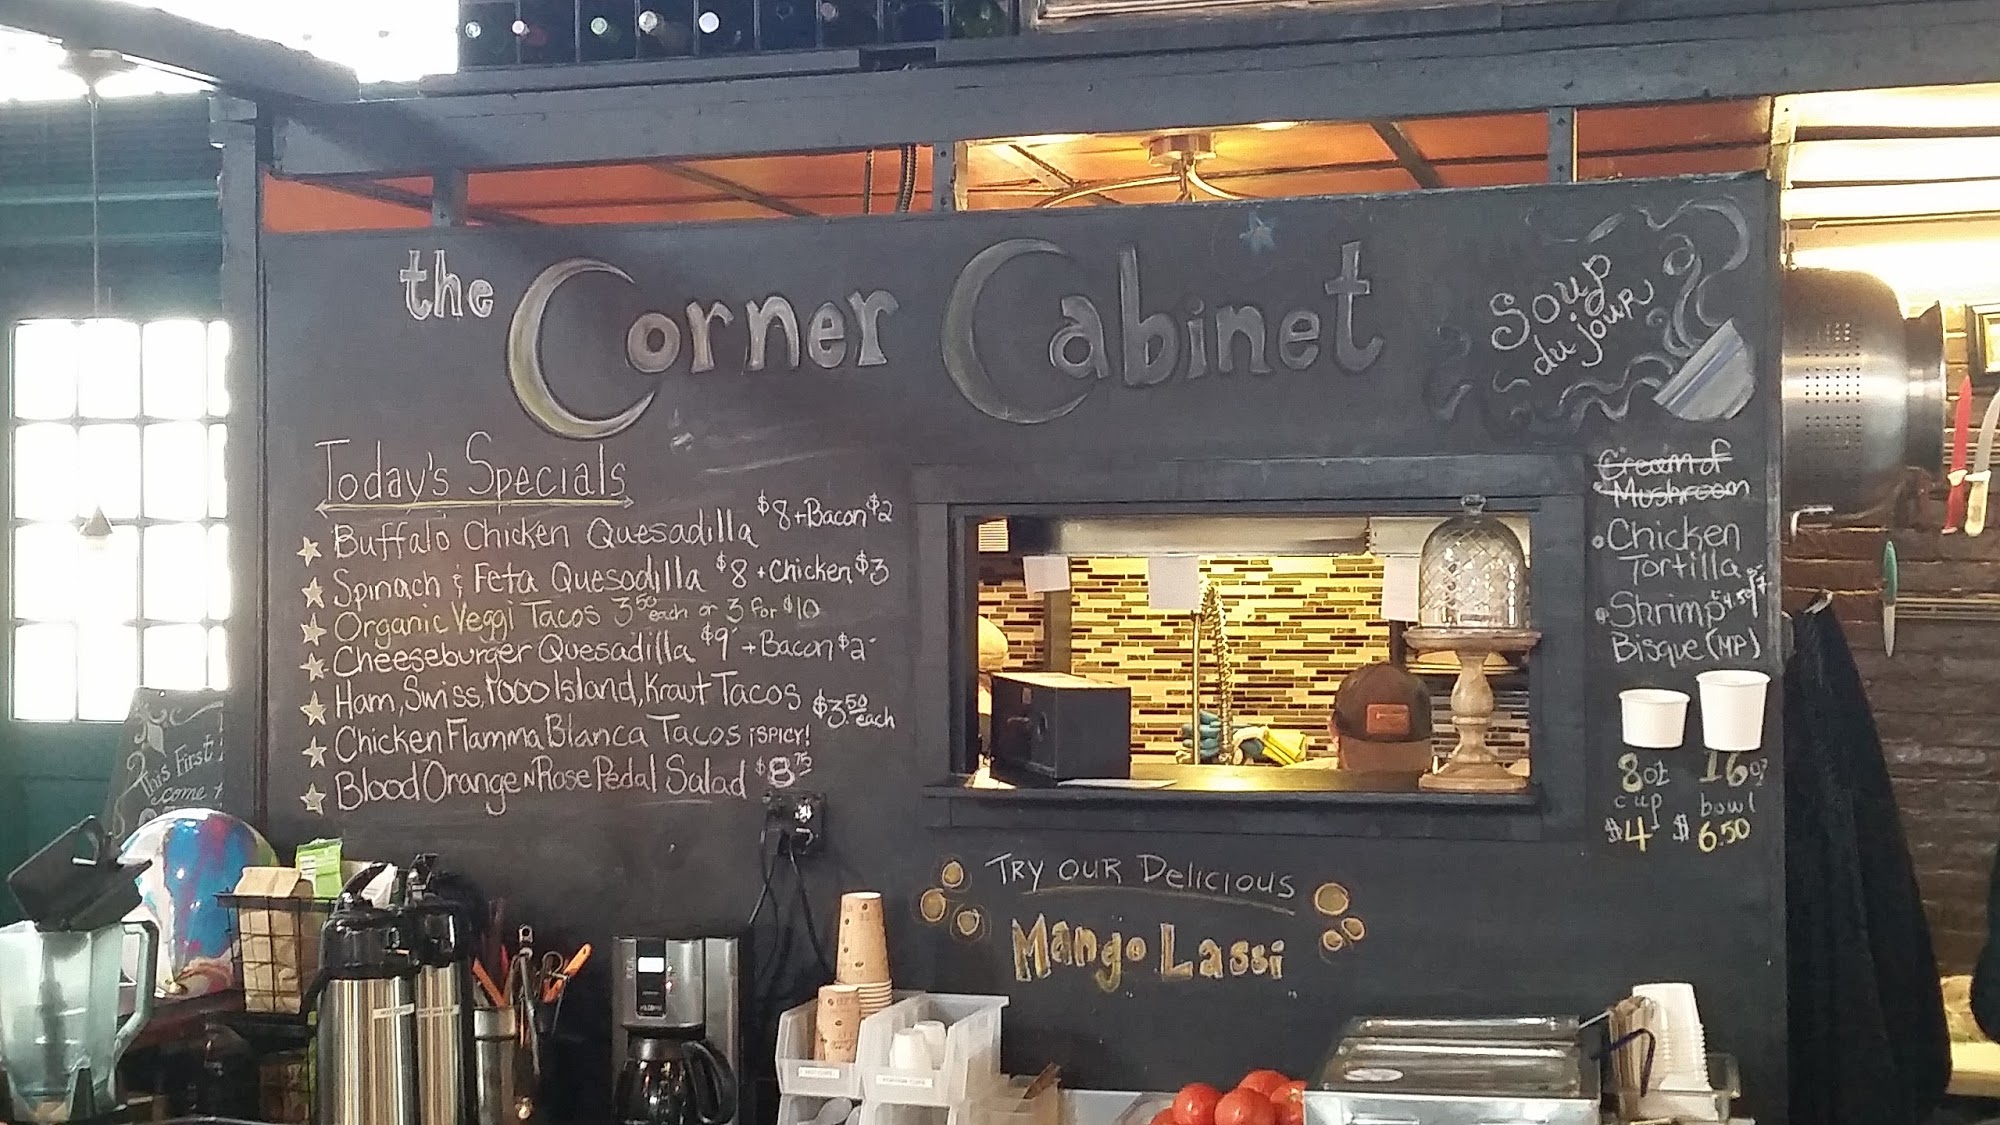 the Corner Cabinet
Soup
du jour
Today's Specials
Buffalo Chicken Quesadilla $8 + Bacon $2
Spinach & Feta Quesadilla $8 + Chicken $3
Organic Veggi Tacos 3.50 each or 3 for $10
Cheeseburger Quesadilla $9 + Bacon $2
Ham, Swiss, 1000 Island, Kraut Tacos $3.50 each
Chicken Flamma Blanca Tacos ¡SPICY!
Blood Orange N Rose Pedal Salad $8.75
Cream of
Mushroom
Chicken
Tortilla
Shrimp
Bisque (MP)
8oz 16oz
cup bowl
$4 $6.50
TRY OUR Delicious
Mango Lassi
This First
come